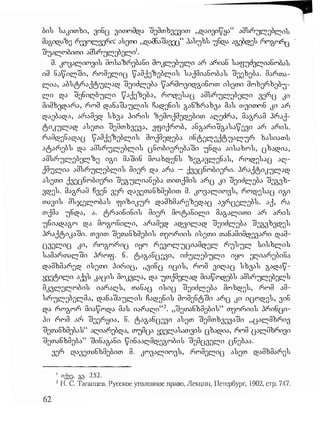 ბის საკითხი, ვინც ვითომდა შემთხვევით „დაივიწყა“ ამსრულებლის
მაგიდაზე რევოლვერი: ასეთი „დამნაშავეც“ პასუხს უნდა აგებდეს როგორც
შუალობითი ამსრულებელი¹.
მ. კოვალიოვის მოსაზრებანი მოკლებული არ არიან საფუძვლიანობას
იმ ნაწილში, რომელიც წამქეზებლის საქმიანობას შეეხება. მართა-
ლია, აბსტრაქტულად შეიძლება წარმოვიდგინოთ ისეთი მოხერხებუ-
ლი და შენიღბული წაქეზება, როდესაც ამსრულებელი ვერც კი
მიმხვდარა, რომ დანაშაულის ჩადენის განზრახვა მას თვითონ კი არ
დაებადა, არამედ სხვა პირის ზემოქმედებით აღეძრა, მაგრამ პრაქ-
ტიკულად ასეთი შემთხვევა, ვფიქრობ, ანგარიშგასაწევი არ არის,
რამდენადაც წამქეზებლის მოქმედება ინტელექტუალურ ხასიათს
ატარებს და ამსრულებლის ცნობიერებაში უნდა აისახოს, ცხადია,
ამსრულებელზე იგი მაშინ მოახდენს ზეგავლენას, როდესაც აღ-
ქმულია ამსრულებლის მიერ და არა — ქვეცნობიერი. პრაქტიკულად
ასეთი ქვეცნობიერი შეგულიანება თითქმის არც კი შეიძლება შეგვხ-
ვდეს. მაგრამ ჩვენ ვერ დავეთანხმებით მ. კოვალიოვს, როდესაც იგი
თავის მსჯელობას ფიზიკურ დამხმარეზედაც ავრცელებს. აქ, რა
თქმა უნდა, ა. ტრაინინის მიერ მოტანილი მაგალითი არ არის
უნიადაგო და მოგონილი, არამედ ადვილად შეიძლება შეგვხვდეს
პრაქტიკაში. თვით შეთანხმების თეორიის ისეთი თანამიმდევარი დამ-
ცველიც კი, როგორიც იყო რევოლუციამდელ რუსულ სისხლის
სამართალში პროფ. ნ. ტაგანცევი, იძულებული იყო ეღიარებინა
დამხმარედ ისეთი პირიც, „ვინც იცის, რომ ვიღაც სხვას გადაწ-
ყვეტილი აქვს კაცის მოკვლა, და უთქმელად მიაწოდებს ამსრულებელს
მკვლელობის იარაღს, თანაც ისიც შეიძლება მოხდეს, რომ ამ-
სრულებელმა, დანაშაულის ჩადენის მომენტში არც კი იცოდეს, ვინ
და როგორ მიაწოდა მას იარაღი“². „შეთანხმების“ თეორიის პრინცი-
პი რომ არ შეერყია, ნ. ტაგანცევი ასეთ შემთხვევაში „ცალმხრივ
შეთანხმებას“ აღიარებდა, თუმცა ყველასათვის ცხადია, რომ ცალმხრივი
შეთანხმება“ შინაგანი წინააღმდეგობის შემცველი ცნებაა.
ვერ დავეთანხმებით მ. კოვალიოვს, რომელიც ასეთ დამხმარეს
¹ იქვე, გვ. 252.
² Н. С. Таганцев, Русское уголовное право, Лекции, Петербург, 1902, стр. 747.
62